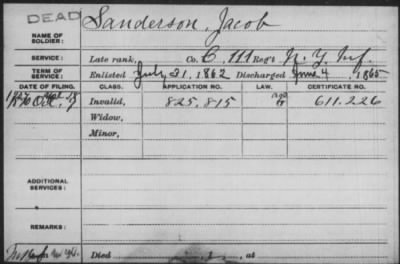 DEAD
Sanderson, Jacob
NAME OF SOLDIER:
SERVICE: Late rank, Co. C, 111 Reg't N. Y. Inf.
TERM OF SERVICE: Enlisted July 21, 1862 Discharged June 4, 1865
DATE OF FILING. CLASS. APPLICATION NO. LAW. CERTIFICATE NO.
1890 Invalid, 825,815 611.226
Widow,
Minor,
ADDITIONAL SERVICES:
REMARKS:
Died , at